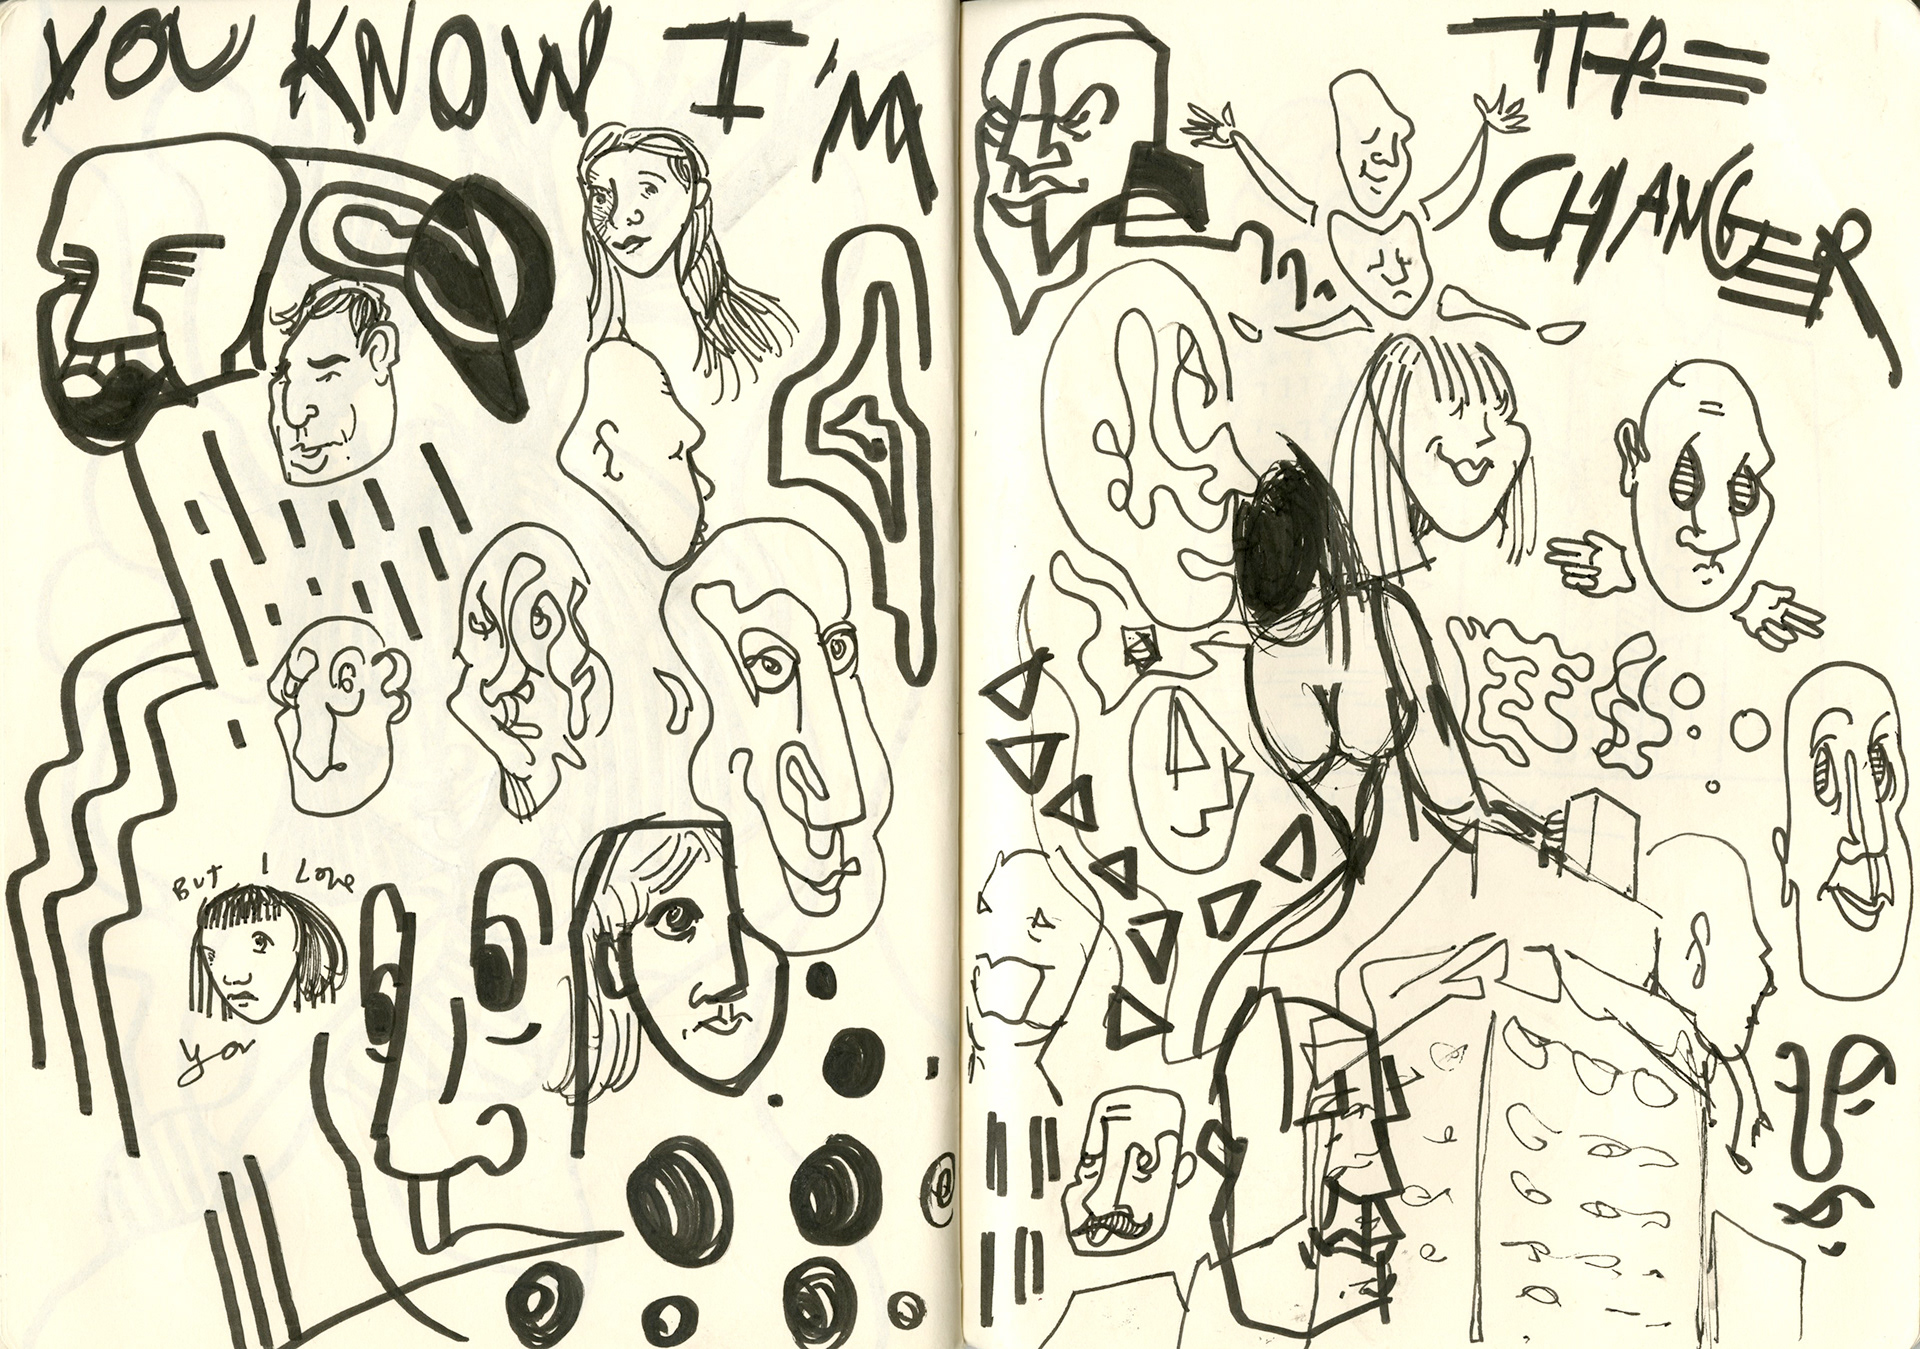 YOU KNOW I'M
THE
CHANGER
BUT I Love
you